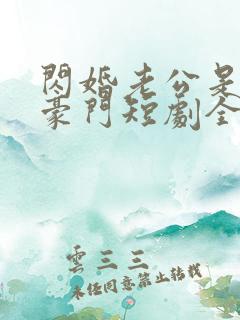 閃婚老公是
豪門短劇全
雲三三
未经同意禁止转载